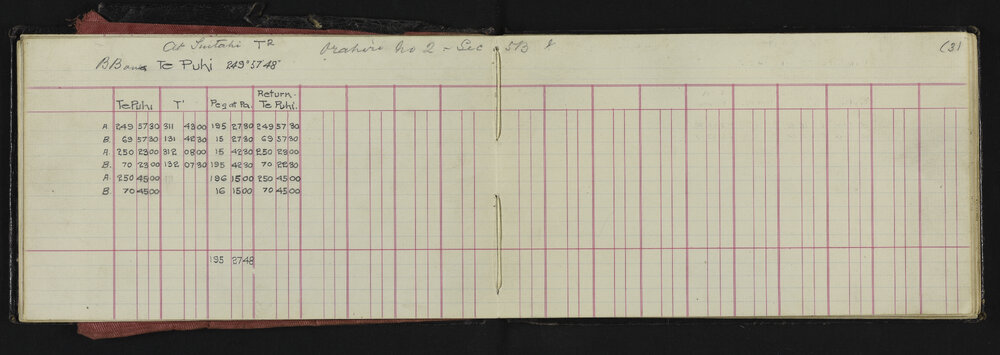 At Tuitahi T² Orahiri No 2 - Sec 5B (3)
BBone Te Puhi 249° 57' 48"
Return.
Te Puhi T' Peg at Pa. Te Puhi.
A. 249 57 30 311 43 00 195 27 30 249 57 30
B. 69 57 30 131 42 30 15 27 30 69 57 30
A. 250 23 00 312 08 00 15 42 30 250 23 00
B. 70 23 00 132 07 30 195 42 30 70 22 30
A. 250 45 00 196 15 00 250 45 00
B. 70 45 00 16 15 00 70 45 00
195 27 48